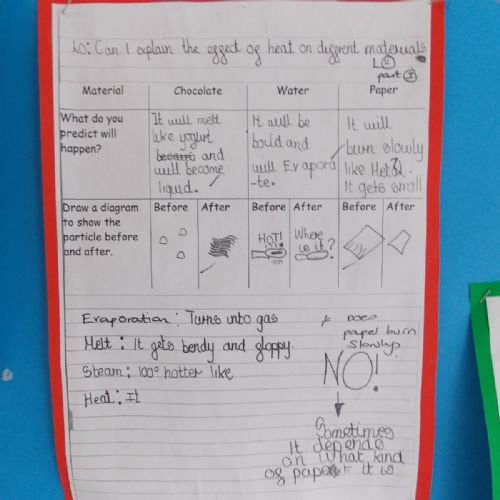 LO: Can I explain the effect of heat on different materials
part I
Material Chocolate Water Paper
What do you predict will happen?
It will melt
like yogurt
because and
will become
liquid.
It will be
boild and
will Evapora
-te.
It will
burn slowly
like
It gets small
Draw a diagram to show the particle before and after.
Before After Before After Before After
HOT!
Where
is it?
Evaporation: Turns into gas
Melt: It gets bendy and gloppy.
Steam: 100° hotter like
Heat: It
* Does
paper burn
slowly?
NO!
Sometimes
It depends
on what kind
of paper it is